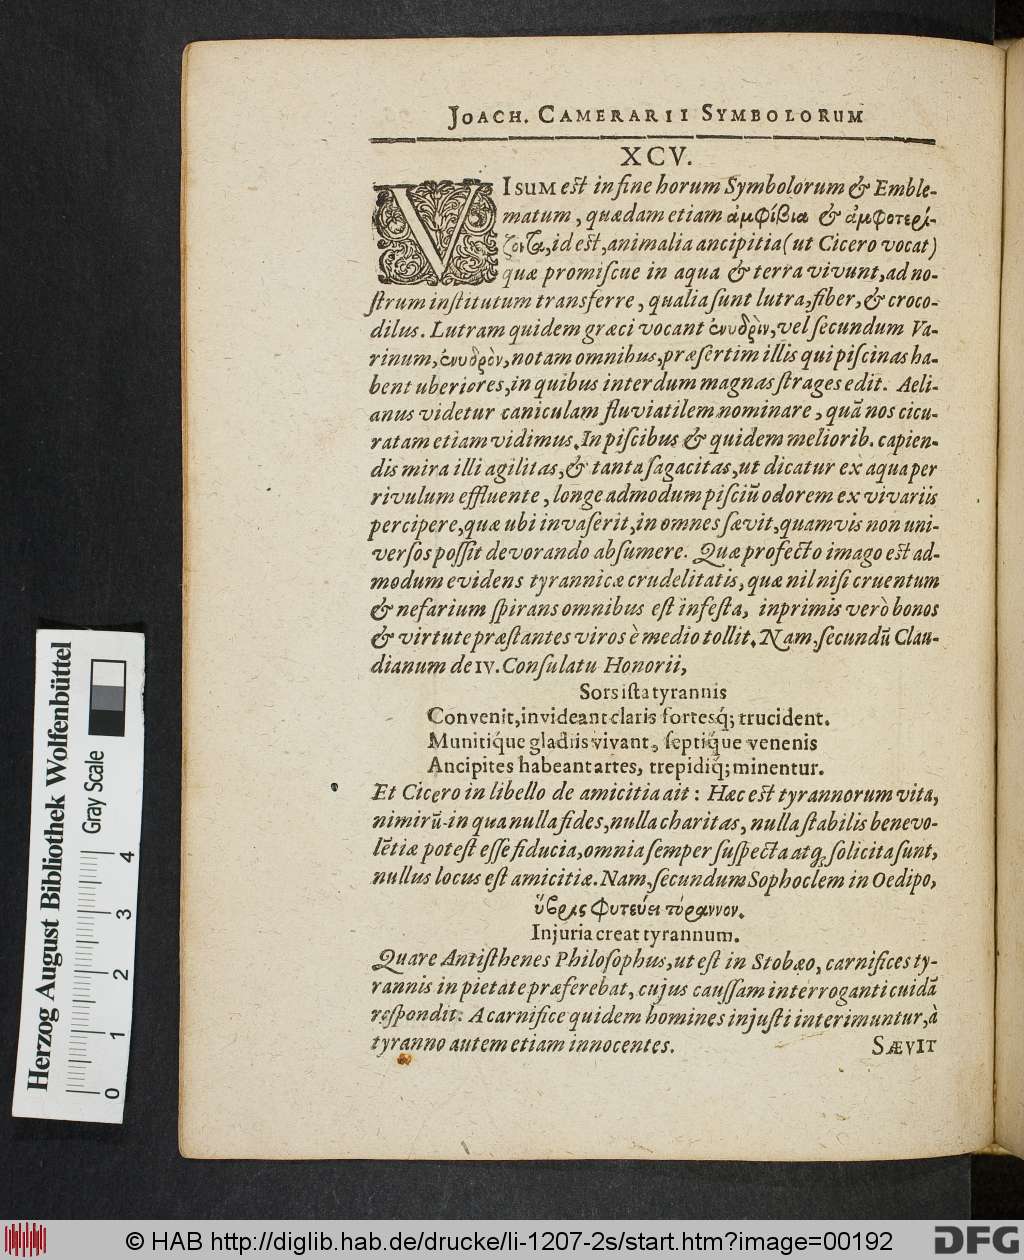 JOACH. CAMERARII SYMBOLORUM
XCV.
VISUM eſt in fine horum Symbolorum & Emble-
matum, quædam etiam ἀμφίβια & ἀμφοτερί-
ζοντα, id eſt, animalia ancipitia (ut Cicero vocat)
quæ promiſcue in aqua & terra vivunt, ad no-
ſtrum inſtitutum transferre, qualia ſunt lutra, fiber, & croco-
dilus. Lutram quidem græci vocant ἐνυδρὶν, vel ſecundum Va-
rinum, ἐνυδρὸν, notam omnibus, præſertim illis qui piſcinas ha-
bent uberiores, in quibus interdum magnas ſtrages edit. Aeli-
anus videtur caniculam fluviatilem nominare, quã nos cicu-
ratam etiam vidimus. In piſcibus & quidem meliorib. capien-
dis mira illi agilitas, & tanta ſagacitas, ut dicatur ex aqua per
rivulum effluente, longe admodum piſciũ odorem ex vivariis
percipere, quæ ubi invaſerit, in omnes ſævit, quamvis non uni-
verſos poſſit devorando abſumere. Quæ profecto imago eſt ad-
modum evidens tyrannicæ crudelitatis, quæ nil niſi cruentum
& nefarium ſpirans omnibus eſt infeſta, inprimis verò bonos
& virtute præſtantes viros è medio tollit. Nam, ſecundũ Clau-
dianum de IV. Conſulatu Honorii,
Sors iſta tyrannis
Convenit, invideant claris fortesq́; trucident.
Munitiq́ue gladiis vivant, ſeptiq́ue venenis
Ancipites habeant artes, trepidiq́; minentur.
Et Cicero in libello de amicitia ait: Hæc eſt tyrannorum vita,
nimirũ in qua nulla fides, nulla charitas, nulla ſtabilis benevo-
lẽtiæ poteſt eſſe fiducia, omnia ſemper ſuſpecta atq; ſolicita ſunt,
nullus locus eſt amicitiæ. Nam, ſecundum Sophoclem in Oedipo,
ὕβρις φυτεύει τύραννον.
Injuria creat tyrannum.
Quare Antiſthenes Philoſophus, ut eſt in Stobæo, carnifices ty-
rannis in pietate præferebat, cujus cauſſam interroganti cuidã
reſpondit: A carnifice quidem homines injuſti interimuntur, à
tyranno autem etiam innocentes.
SÆVIT
Herzog August Bibliothek Wolfenbüttel
Gray Scale
0 1 2 3 4
© HAB http://diglib.hab.de/drucke/li-1207-2s/start.htm?image=00192
DFG